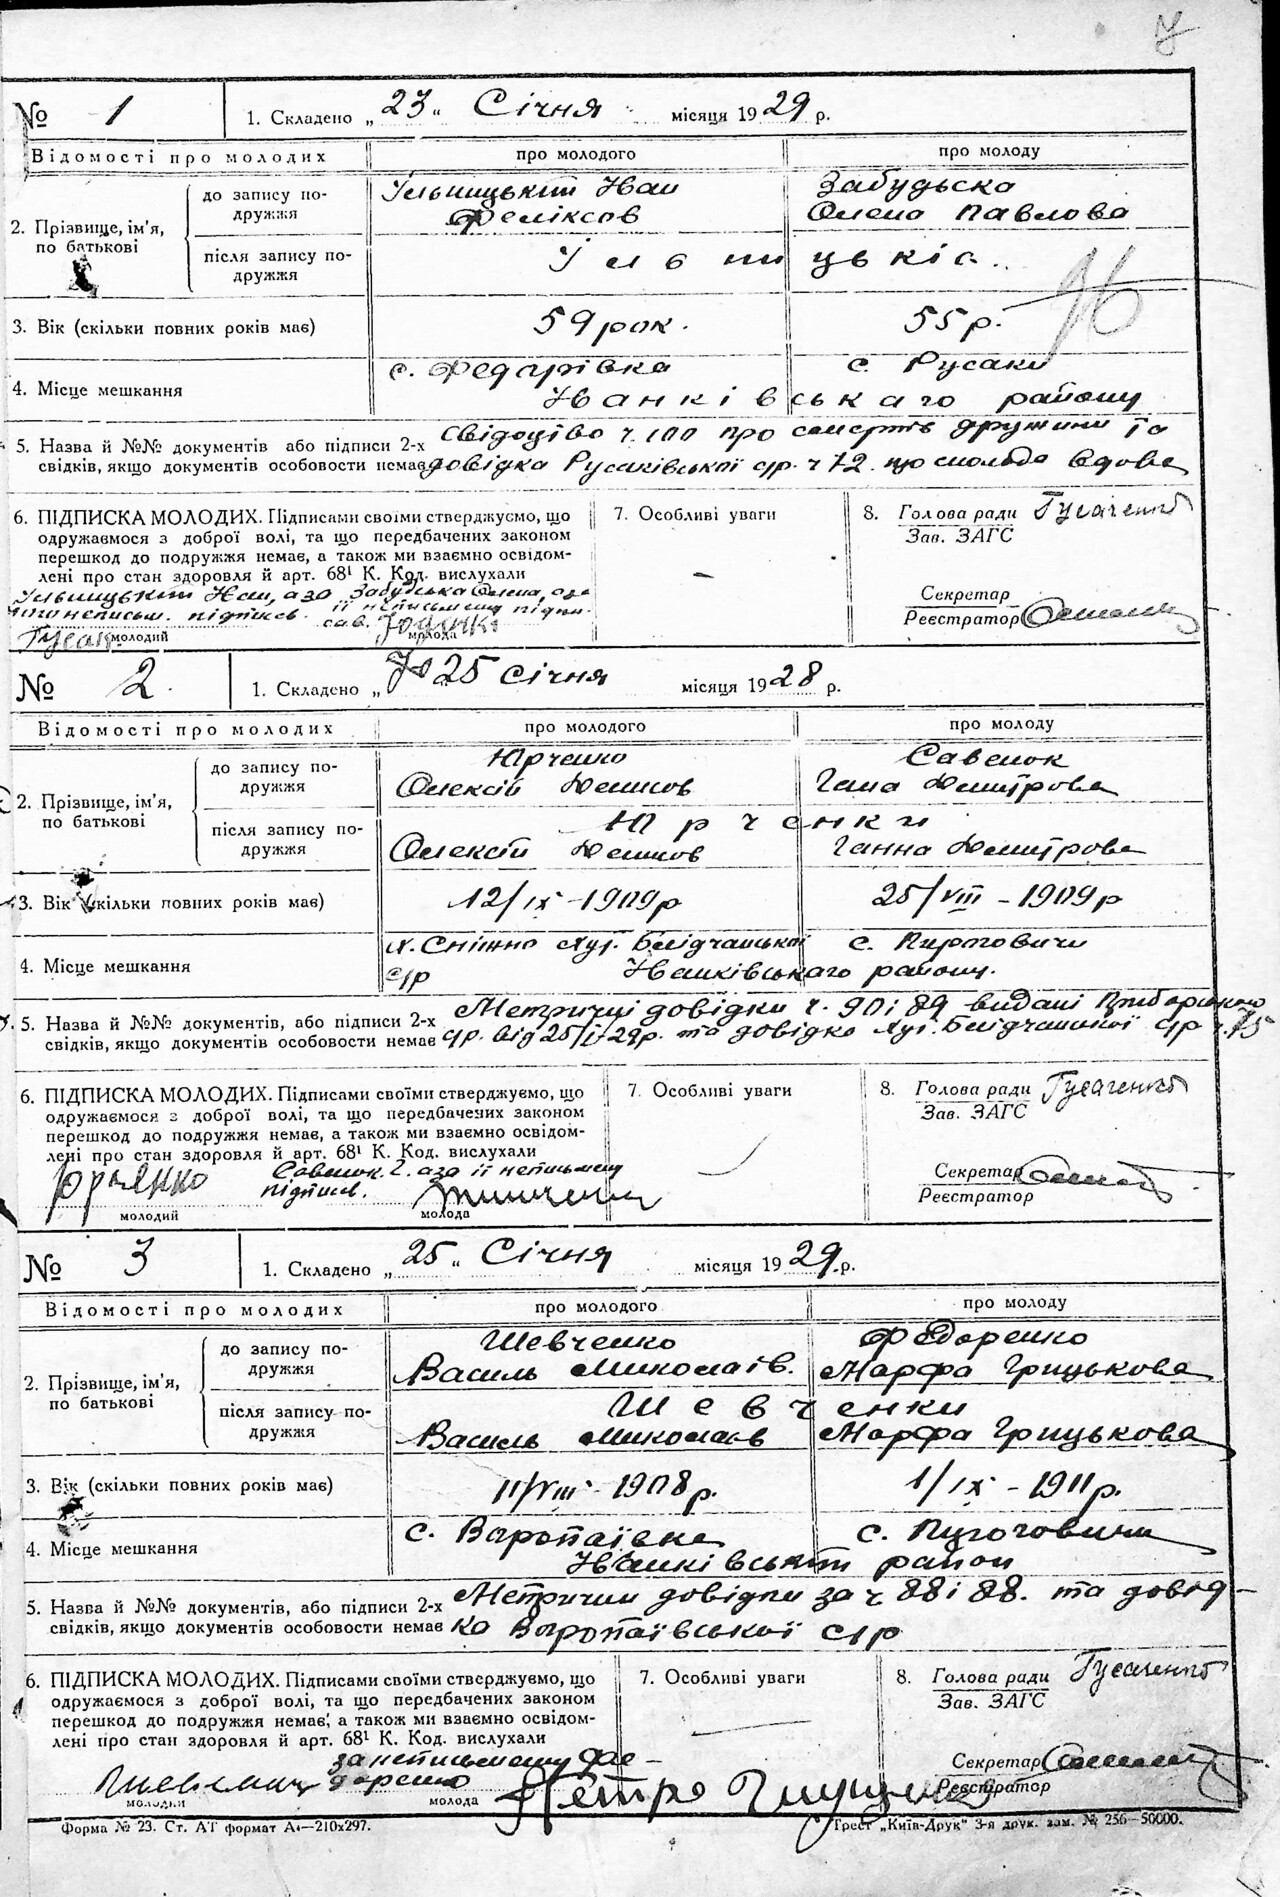 № 1 1. Складено „ 23 “ Січня місяця 19 29 р.
Відомості про молодих про молодого про молоду
2. Прізвище, ім'я, по батькові
до запису подружжя
Ульницький Іван Забудьска
Феліксов Олена Павлова
після запису подружжя
Ульницькіє.
3. Вік (скільки повних років має) 59 рок. 55 р.
96
4. Місце мешкання с. Федорівка с. Русаки
Іванківського району
5. Назва й №№ документів або підписи 2-х Свідоцтво ч. 100 про смерть дружини та
свідків, якщо документів особовости немає довідка Русаківської с/р. ч 72 що молода вдова
6. ПІДПИСКА МОЛОДИХ. Підписами своїми стверджуємо, що 7. Особливі уваги 8. Голова ради Гусаченко
одружаємося з доброї волі, та що передбачених законом Зав. ЗАГС
перешкод до подружжя немає, а також ми взаємно освідом-
лені про стан здоровля й арт. 68¹ К. Код. вислухали Секретар
Ульницький Іван, а за Забудська Олена, а за Реєстратор
його неписьм. підписв. її неписьмену підпи-
сав.
молодий молода
№ 2 1. Складено „ 25 Січня місяця 19 28 р.
Відомості про молодих про молодого про молоду
2. Прізвище, ім'я, по батькові
до запису подружжя
Юрченко Савенок
Олексій Демков Гана Дмитрова
після запису подружжя
Юрченки
Олексій Демков Ганна Дмитрова
3. Вік (скільки повних років має) 12/ІХ - 1909 р 25/VIII - 1909 р
4. Місце мешкання х. Сніжно Хут. с.
с/р Іванківського району.
5. Назва й №№ документів, або підписи 2-х Метричні довідки ч. 90 і 89 видані
свідків, якщо документів особовости немає с/р. від 25/І-29р. та довідка Хут. с/р ч. 75
6. ПІДПИСКА МОЛОДИХ. Підписами своїми стверджуємо, що 7. Особливі уваги 8. Голова ради Гусаченко
одружаємося з доброї волі, та що передбачених законом Зав. ЗАГС
перешкод до подружжя немає, а також ми взаємно освідом-
лені про стан здоровля й арт. 68¹ К. Код. вислухали Секретар
Юрченко Савенок Г. а за її неписьмену Реєстратор
підписв.
молодий молода
№ 3 1. Складено „ 25 “ Січня місяця 19 29 р.
Відомості про молодих про молодого про молоду
2. Прізвище, ім'я, по батькові
до запису подружжя
Шевченко Федоренко
Василь Миколаїв. Марфа Грицькова
після запису подружжя
Шевченки
Василь Миколаїв Марфа Грицькова
3. Вік (скільки повних років має) 11/VIII - 1908 р. 1/ІХ - 1911 р.
4. Місце мешкання с. Воропаївка с.
Іванківський район
5. Назва й №№ документів, або підписи 2-х Метрични довідки за ч 88 і 88. та довід-
свідків, якщо документів особовости немає ка Воропаївської с/р
6. ПІДПИСКА МОЛОДИХ. Підписами своїми стверджуємо, що 7. Особливі уваги 8. Голова ради Гусаченко
одружаємося з доброї волі, та що передбачених законом Зав. ЗАГС
перешкод до подружжя немає, а також ми взаємно освідом-
лені про стан здоровля й арт. 68¹ К. Код. вислухали
за неписьмену Фе- Секретар
доренко Петро Реєстратор
молодий молода
Форма № 23. Ст. АТ формат А₄—210х297. Трест „Київ-Друк“ 3-я друк. зам. № 256—50000.